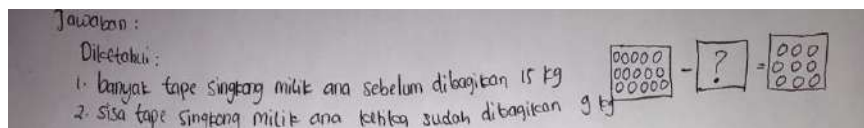 Jawaban :
Diketahui :
1. banyak tape singkong milik ana sebelum dibagikan 15 kg
2. sisa tape singkong milik ana ketika sudah dibagikan 9 kg
- ? =